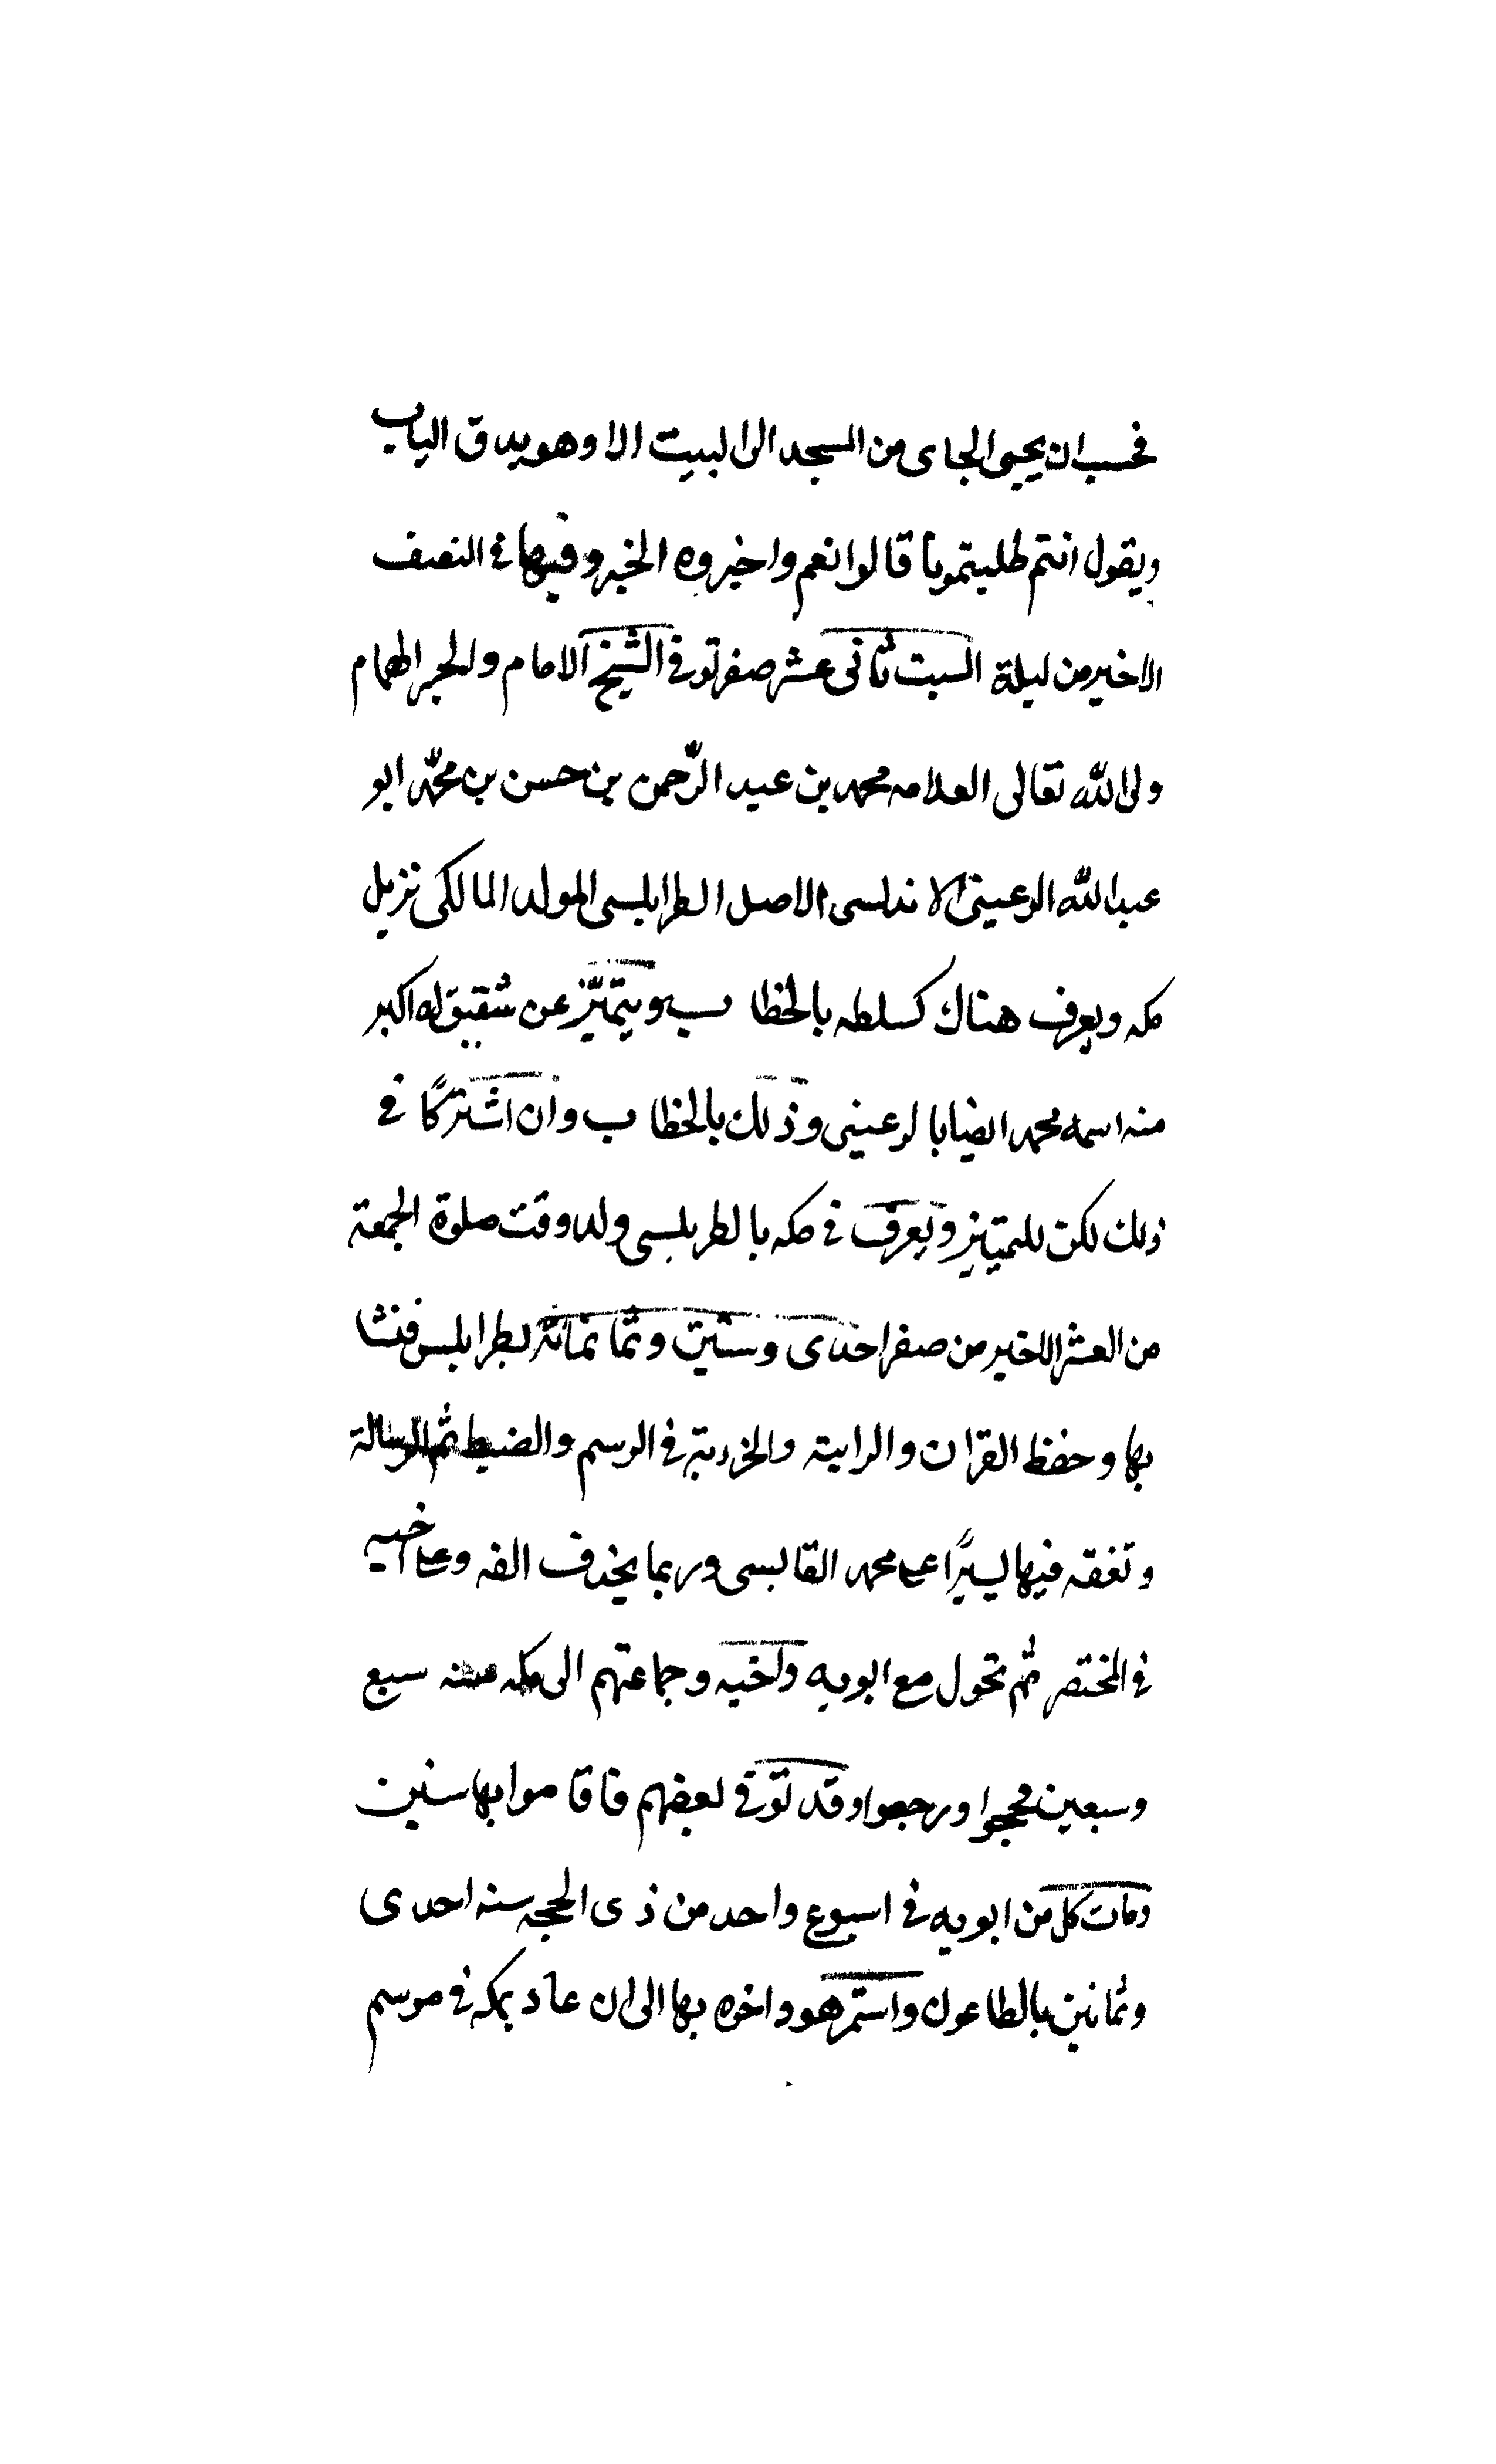 فحسب ان يجيى الجاى من المسجد الى البيت الا وهو يدق الباب
ويقول انتم طلبتمونا قالوا نعم واخبروه الخبر وفيها في النصف
الاخير من ليلة السبت ثانى عشر صفر توفي الشيخ الامام والحبر الهمام
ولى الله تعالى العلامه محمد بن عبد الرحمن بن حسن بن محمد ابو
عبد الله الرعينى الاندلسى الاصل الطرابلسى المولد المالكى نزيل
مكه ويعرف هناك كسلطه بالحطاب ويتميّز عن شقيق له اكبر
منه اسمه محمد ايضا بالرعينى وذلك بالحطاب وان اشتركا في
ذلك لكن للتمييز ويعرف في مكه بالطرابلسى ولد وقت صلوة الجمعة
من العشر الاخير من صفر احدى وستين وثمانمائة بطرابلس فنشا
بها وحفظ القران والراية والخرزية في الرسم والضبط ثم الرسالة
وتفقه فيها يسيرًا على محمد القابسى وربما يحذف الفه وعلى اخيه
في المختصر ثم تحول مع ابويه واخيه وجماعتهم الى مكه سنه سبع
وسبعين فحجوا ورجعوا وقد توفي بعضهم فاقاموا بها سنين
ومات كل من ابويه في اسبوع واحد من ذى الحجه سنه احدى
وثمانين بالطاعون واستمر هو واخوه بها الى ان عاد بمكه في موسم